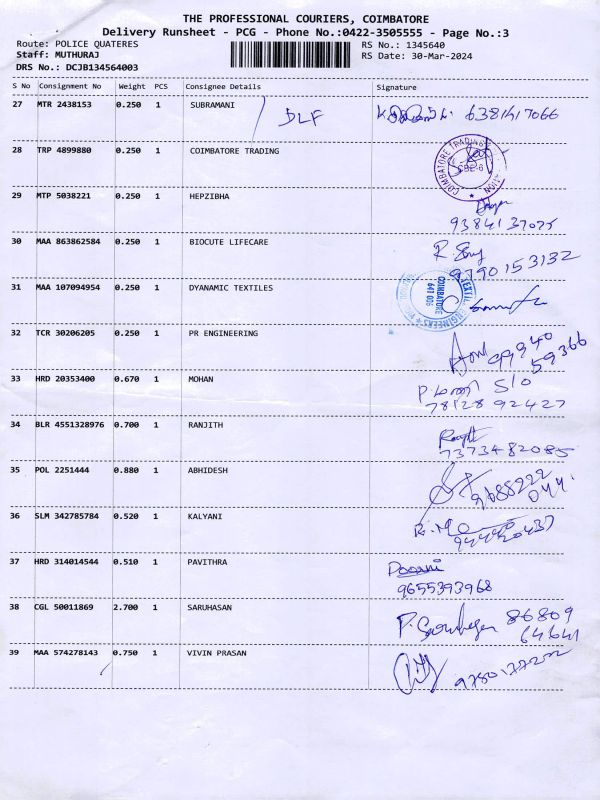 THE PROFESSIONAL COURIERS, COIMBATORE
Delivery Runsheet - PCG - Phone No.:0422-3505555 - Page No.:3
Route: POLICE QUATERES RS No.: 1345640
Staff: MUTHURAJ RS Date: 30-Mar-2024
DRS No.: DCJB134564003
S No Consignment No Weight PCS Consignee Details Signature
27 MTR 2438153 0.250 1 SUBRAMANI DLF 6381417066
28 TRP 4899880 0.250 1 COIMBATORE TRADING
COIMBATORE TRADING
CBE-6
29 MTP 5038221 0.250 1 HEPZIBHA
9384137075
30 MAA 863862584 0.250 1 BIOCUTE LIFECARE
9790153132
31 MAA 107094954 0.250 1 DYANAMIC TEXTILES
COIMBATORE
641 006
ENGINEERS
32 TCR 30206205 0.250 1 PR ENGINEERING
99940
59366
33 HRD 20353400 0.670 1 MOHAN
S/o
78128 92427
34 BLR 4551328976 0.700 1 RANJITH
7373482085
35 POL 2251444 0.880 1 ABHIDESH
9688222
044
36 SLM 342785784 0.520 1 KALYANI
37 HRD 314014544 0.510 1 PAVITHRA
9655393968
38 CGL 50011869 2.700 1 SARUHASAN
86809
64641
39 MAA 574278143 0.750 1 VIVIN PRASAN